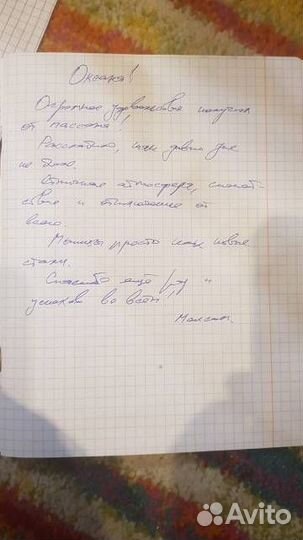 Оксана!
Огромное удовольствие получил
от массажа!
Расслабило, как давно уже
не было.
Отличная атмосфера, спокой-
ствие и отключение от
всего.
Мышцы просто как новые
стали.
Спасибо ещё раз и
успехов во всём!
Максим.
Avito